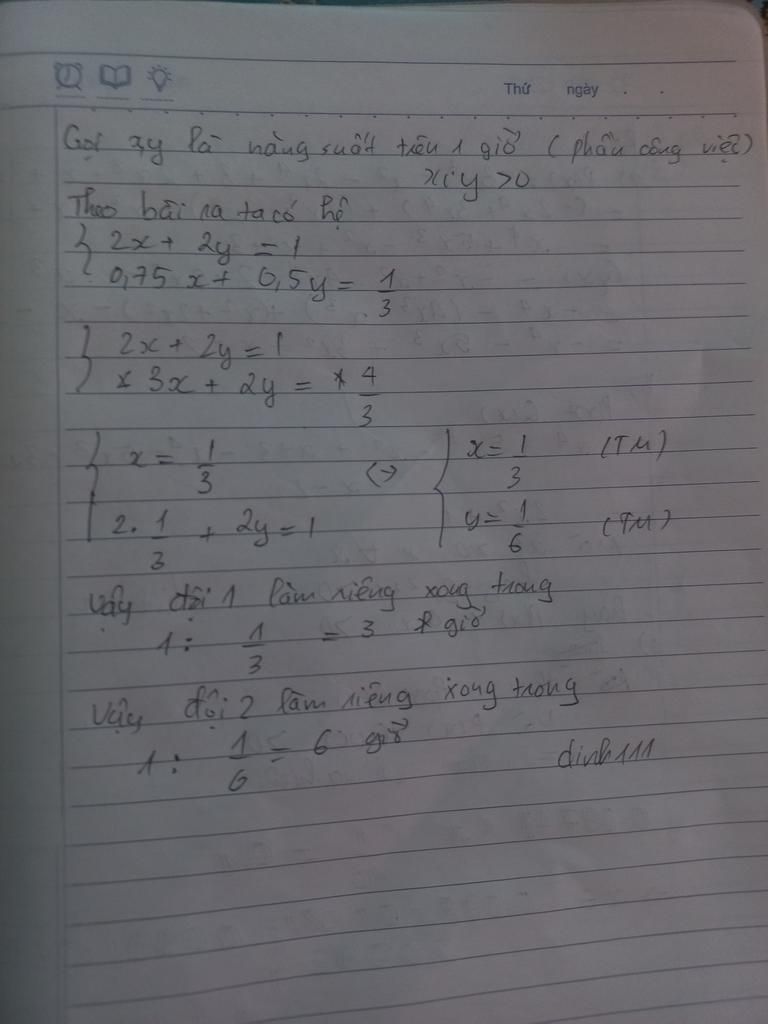 Thứ ngày . .
Gọi x,y là năng suất trên 1 giờ (phần công việc)
x;y >0
Theo bài ra ta có hệ
{ 2x + 2y = 1
0,75 x + 0,5y = 1/3
{ 2x + 2y = 1
3x + 2y = 4/3
{ x = 1/3 <-> { x = 1/3 (TM)
2. 1/3 + 2y = 1 y = 1/6 (TM)
Vậy đội 1 làm riêng xong trong
1 : 1/3 = 3 giờ
Vậy đội 2 làm riêng xong trong
1 : 1/6 = 6 giờ
dinh111